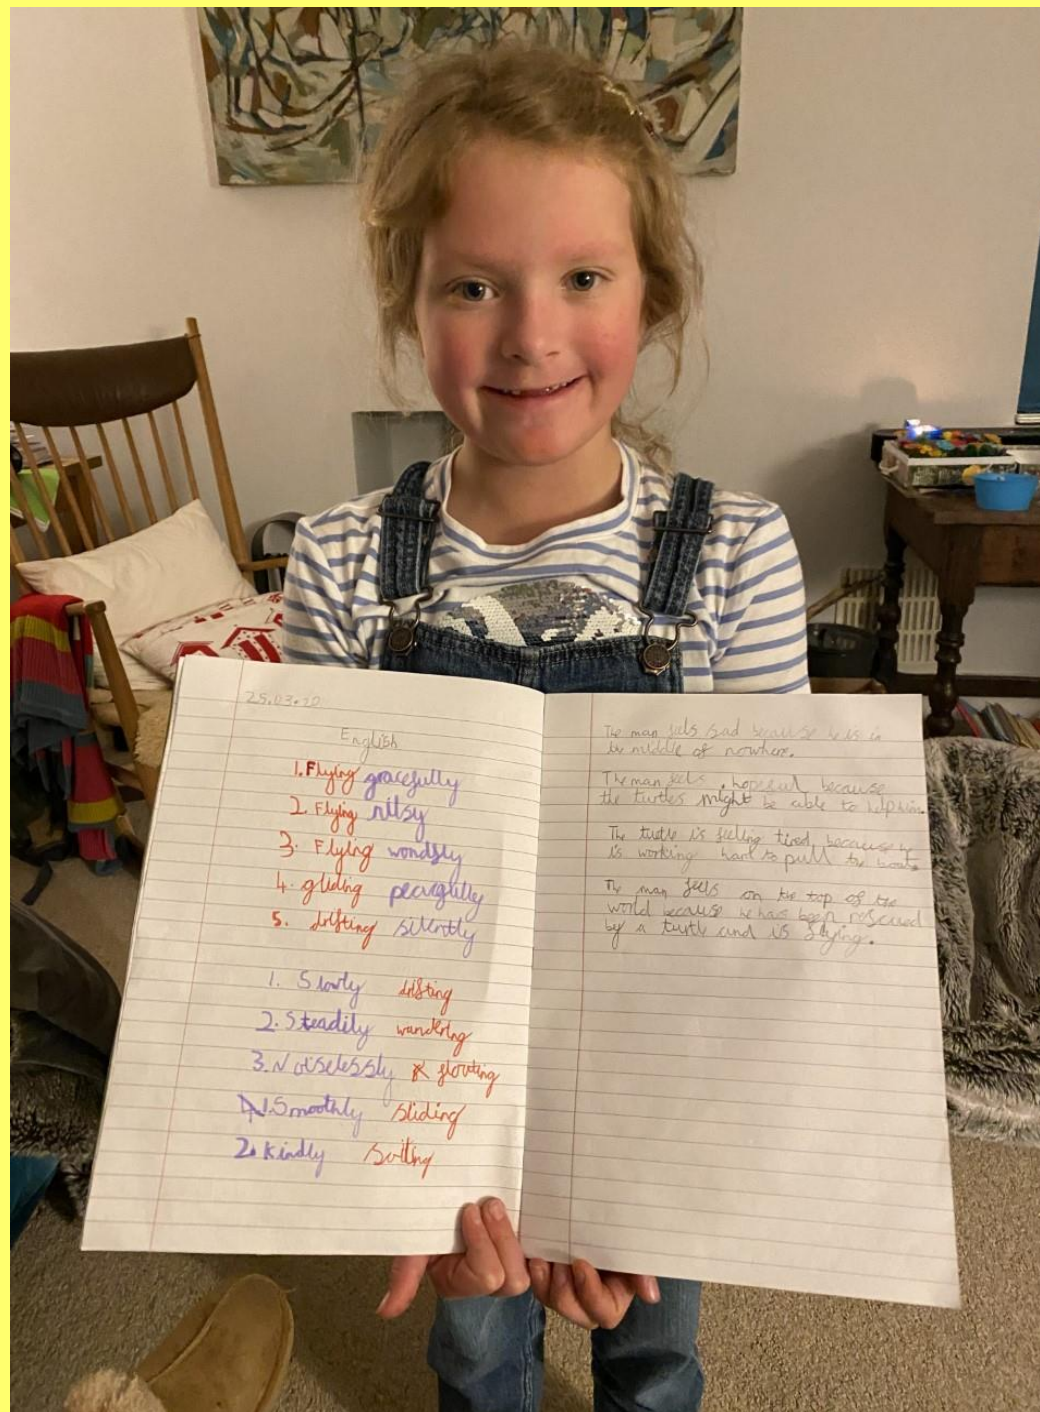 25.03.20
English
1. Flying gracefully
2. Flying nitsy
3. Flying wondsly
4. gliding peacefully
5. drifting silently
1. Slowly drifting
2. Steadily wandering
3. Noiselessly floating
1. Smoothly sliding
2. Kindly
The man feels sad because he is in
the middle of nowhere.
The man feels hopeful because
the turtles might be able to help him.
The turtle is feeling tired because it
is working hard to pull the boat.
The man feels on the top of the
world because he has been rescued
by a turtle and is flying.